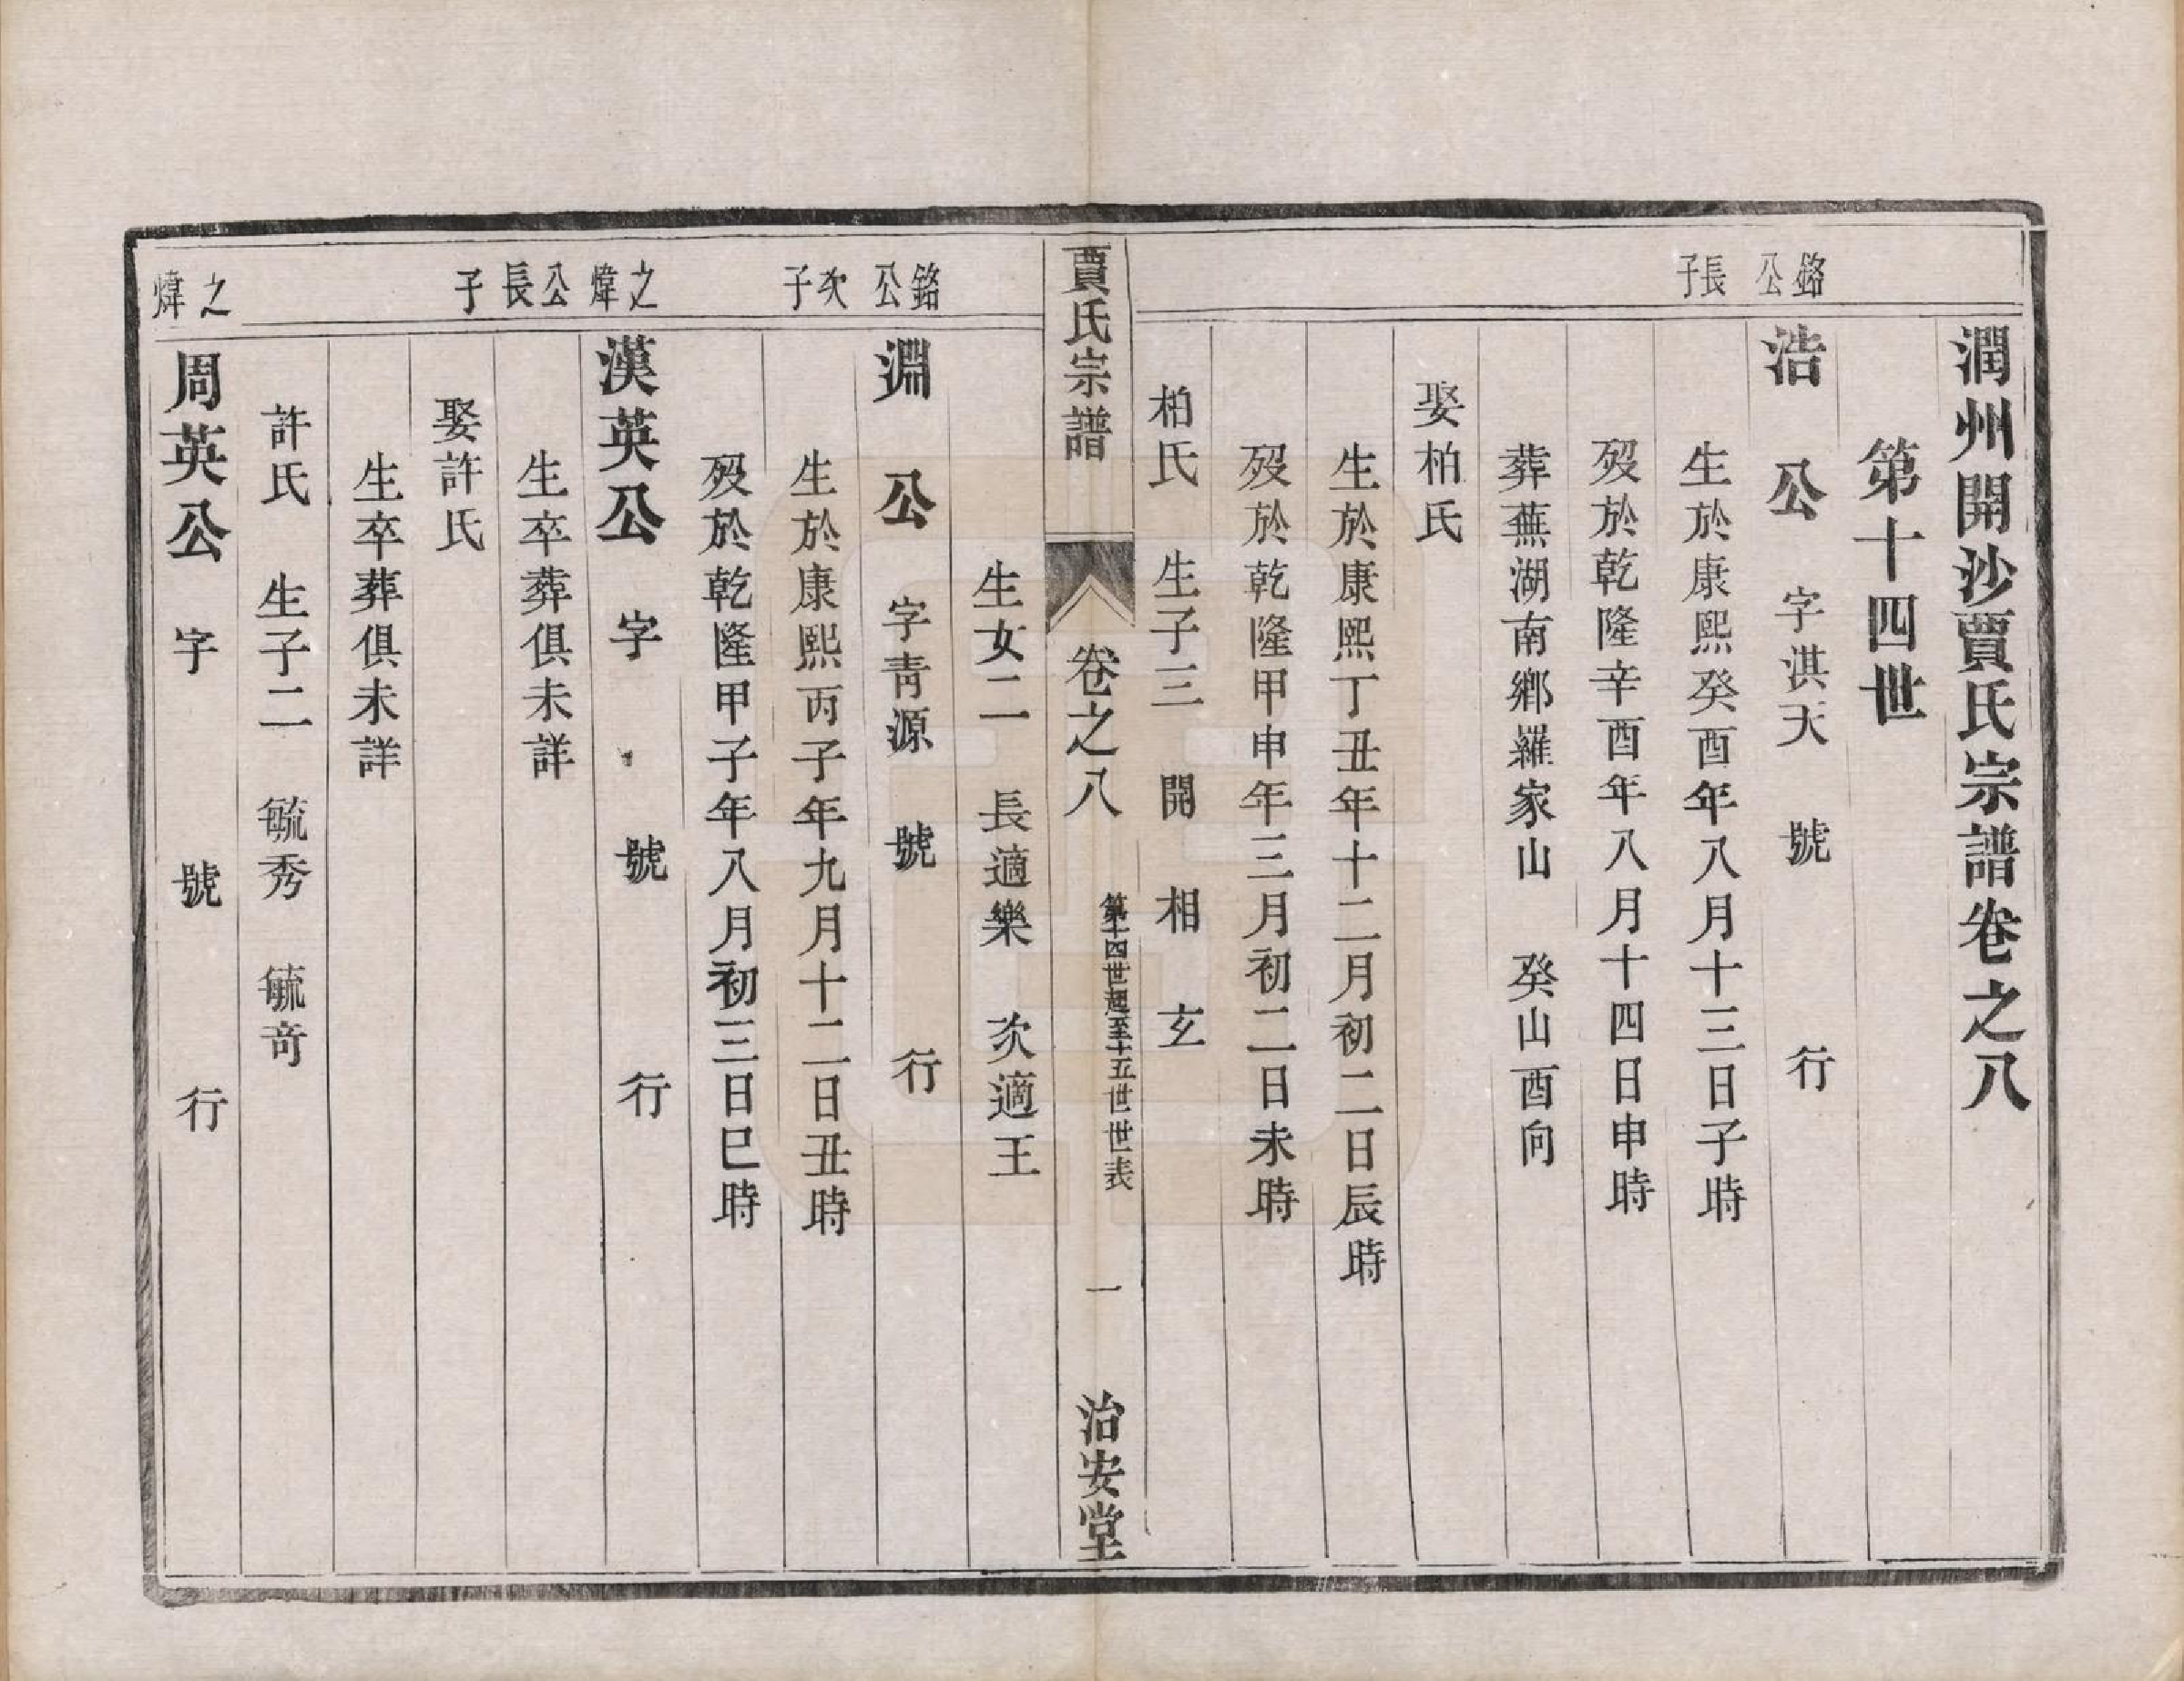 潤州開沙賈氏宗譜卷之八
第十四世
銘公長子
浩公　字淇天　號　行
生於康熙癸酉年八月十三日子時
歿於乾隆辛酉年八月十四日申時
葬蕪湖南鄉羅家山　癸山酉向
娶柏氏
生於康熙丁丑年十二月初二日辰時
歿於乾隆甲申年三月初二日未時
柏氏　生子三　開　相　玄
賈氏宗譜　卷之八　第十四世起至十五世世表　一　治安堂
生女二　長適樂　次適王
銘公次子
淵公　字青源　號　行
生於康熙丙子年九月十二日丑時
歿於乾隆甲子年八月初三日巳時
之煒公長子
漢英公　字　號　行
生卒葬俱未詳
娶許氏
生卒葬俱未詳
許氏　生子二　毓秀　毓奇
之煒
周英公　字　號　行